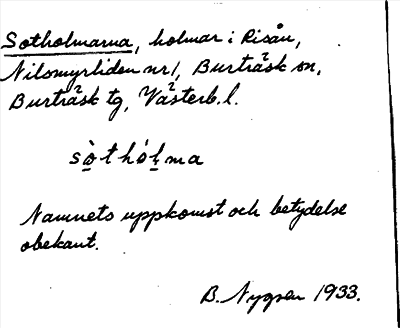 Sotholmarna, holmar i Risån,
Nilsmyrliden nr 1, Burträsk sn,
Burträsk tg, Västerb. l.
sò̲thòl̲ma
Namnets uppkomst och betydelse
obekant.
B. Nygren 1933.